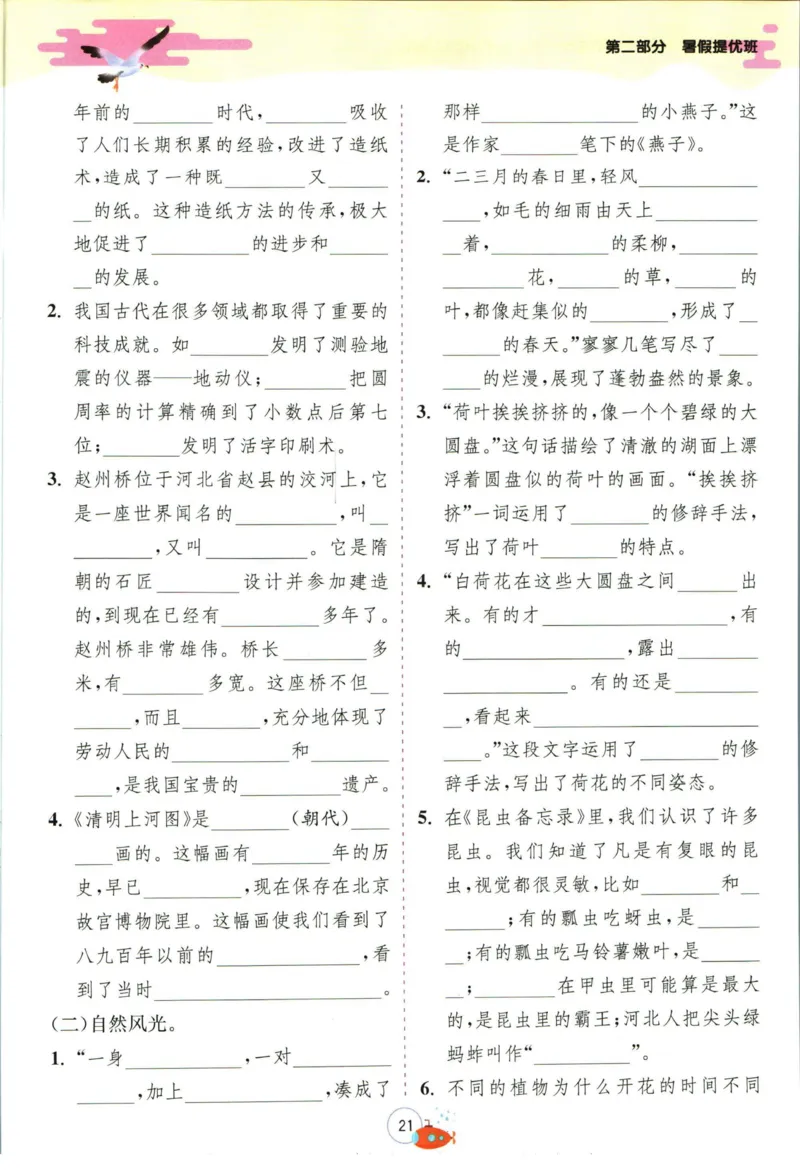 第二部分 暑假提优班
年前的________时代,________吸收
了人们长期积累的经验,改进了造纸
术,造成了一种既________又______
__的纸。这种造纸方法的传承,极大
地促进了__________的进步和______
__的发展。
2. 我国古代在很多领域都取得了重要的
科技成就。如________发明了测验地
震的仪器——地动仪;________把圆
周率的计算精确到了小数点后第七
位;________发明了活字印刷术。
3. 赵州桥位于河北省赵县的洨河上,它
是一座世界闻名的__________,叫__
________,又叫__________。它是隋
朝的石匠________设计并参加建造
的,到现在已经有__________多年了。
赵州桥非常雄伟。桥长________多
米,有________多宽。这座桥不但__
______,而且________,充分地体现了
劳动人民的____________和________
____,是我国宝贵的__________遗产。
4. 《清明上河图》是________(朝代)____
____画的。这幅画有________年的历
史,早已__________,现在保存在北京
故宫博物院里。这幅画使我们看到了
八九百年以前的______________,看
到了当时______________________。
(二)自然风光。
1. “一身____________,一对__________
______,加上______________,凑成了
那样________________的小燕子。”这
是作家________笔下的《燕子》。
2. “二三月的春日里,轻风____________
____,如毛的细雨由天上__________
__着,____________的柔柳,________
________花,______的草,______的
叶,都像赶集似的________,形成了__
______的春天。”寥寥几笔写尽了____
____的烂漫,展现了蓬勃盎然的景象。
3. “荷叶挨挨挤挤的,像一个个碧绿的大
圆盘。”这句话描绘了清澈的湖面上漂
浮着圆盘似的荷叶的画面。“挨挨挤
挤”一词运用了________的修辞手法,
写出了荷叶________的特点。
4. “白荷花在这些大圆盘之间______出
来。有的才____________________,有
的________________,露出________
____________。有的还是________
__,看起来______________________
____。”这段文字运用了________的修
辞手法,写出了荷花的不同姿态。
5. 在《昆虫备忘录》里,我们认识了许多
昆虫。我们知道了凡是有复眼的昆
虫,视觉都很灵敏,比如________和__
______;有的瓢虫吃蚜虫,是______
__;有的瓢虫吃马铃薯嫩叶,是______
__;________在甲虫里可能算是最大
的,是昆虫里的霸王;河北人把尖头绿
蚂蚱叫作“__________”。
6. 不同的植物为什么开花的时间不同
21